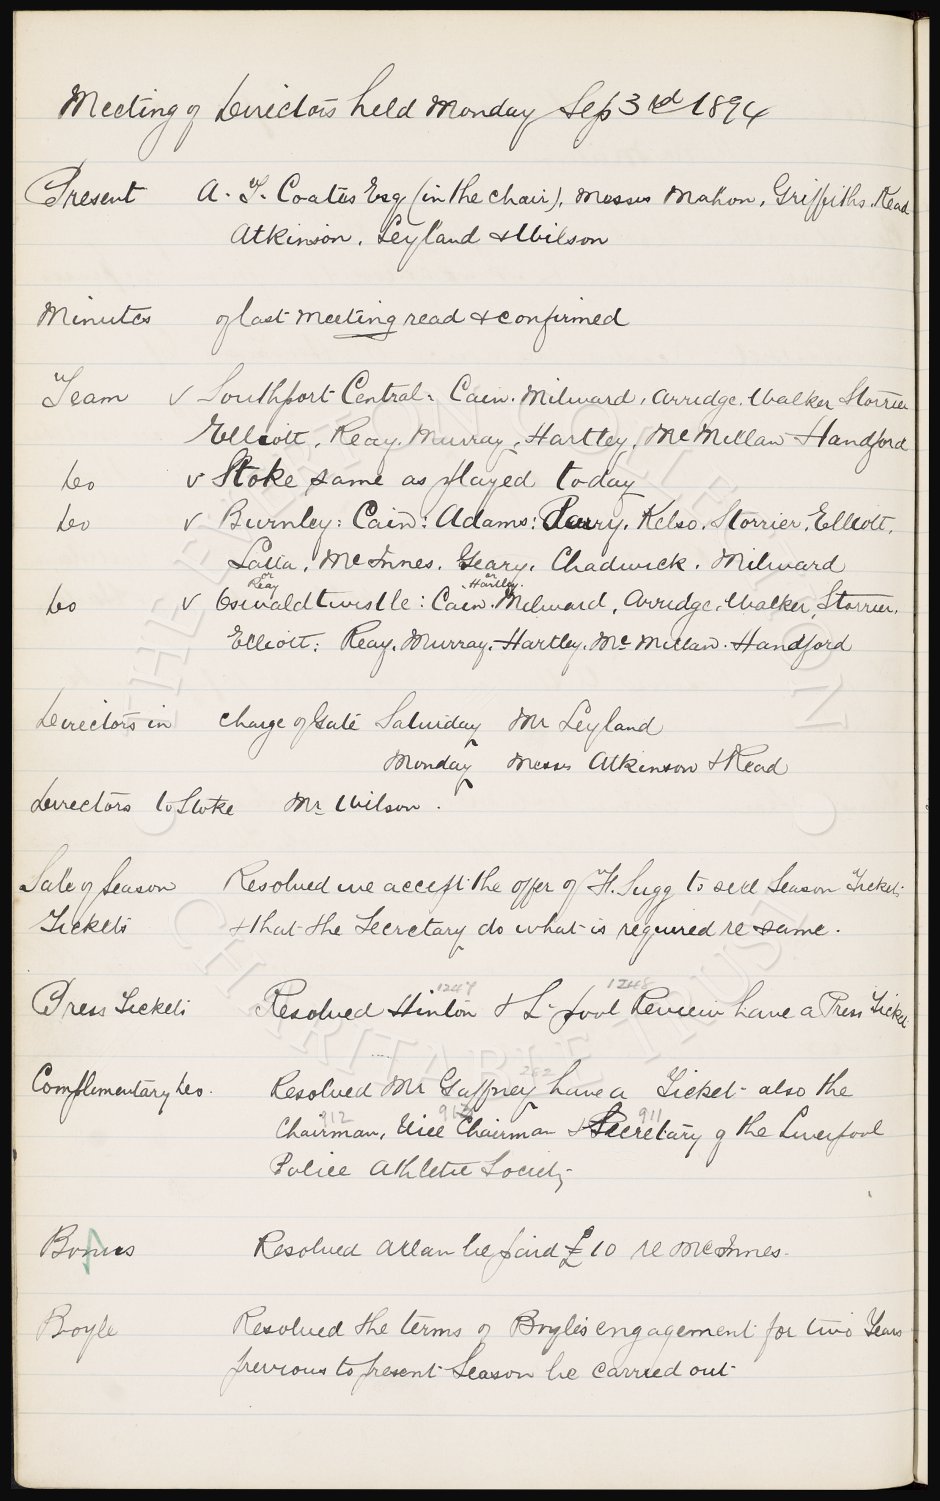 Meeting of Directors held Monday Sep 3rd 1894
Present A. T. Coates Esq (in the chair), Messrs Mahon, Griffiths, Read
Atkinson, Leyland & Wilson
Minutes of last meeting read & confirmed
Team v Southport Central: Cain, Milward, Arridge, Walker Storrier
Elliott, Reay, Murray, Hartley, McMillan & Handford
Do v Stoke same as played today
Do v Burnley: Cain: Adams: Parry, Kelso, Storrier, Elliott,
Latta, McInnes, Geary, Chadwick, Milward
or Reay or Hartley
Do v Oswaldtwistle: Cain, Milward, Arridge, Walker, Storrier,
Elliott: Reay, Murray, Hartley, McMillan, Handford
Directors in charge of Gate Saturday Mr Leyland
Monday Messrs Atkinson & Read
Directors to Stoke Mr Wilson.
Sale of Season Resolved we accept the offer of F. Sugg to sell Season Tickets
Tickets & that the Secretary do what is required re same.
1249 1248
Press Tickets Resolved Hinton & L'pool Review have a Press Ticket
262
Complimentary Do. Resolved Mr Gaffney have a Ticket also the
912 913 911
Chairman, Vice Chairman & Secretary of the Liverpool
Police Athletic Society
Bonus Resolved Allan be paid £10 re McInnes.
Boyle Resolved the terms of Boyle's engagement for two Years
previous to present Season be carried out
THE EVERTON COLLECTION
CHARITABLE TRUST